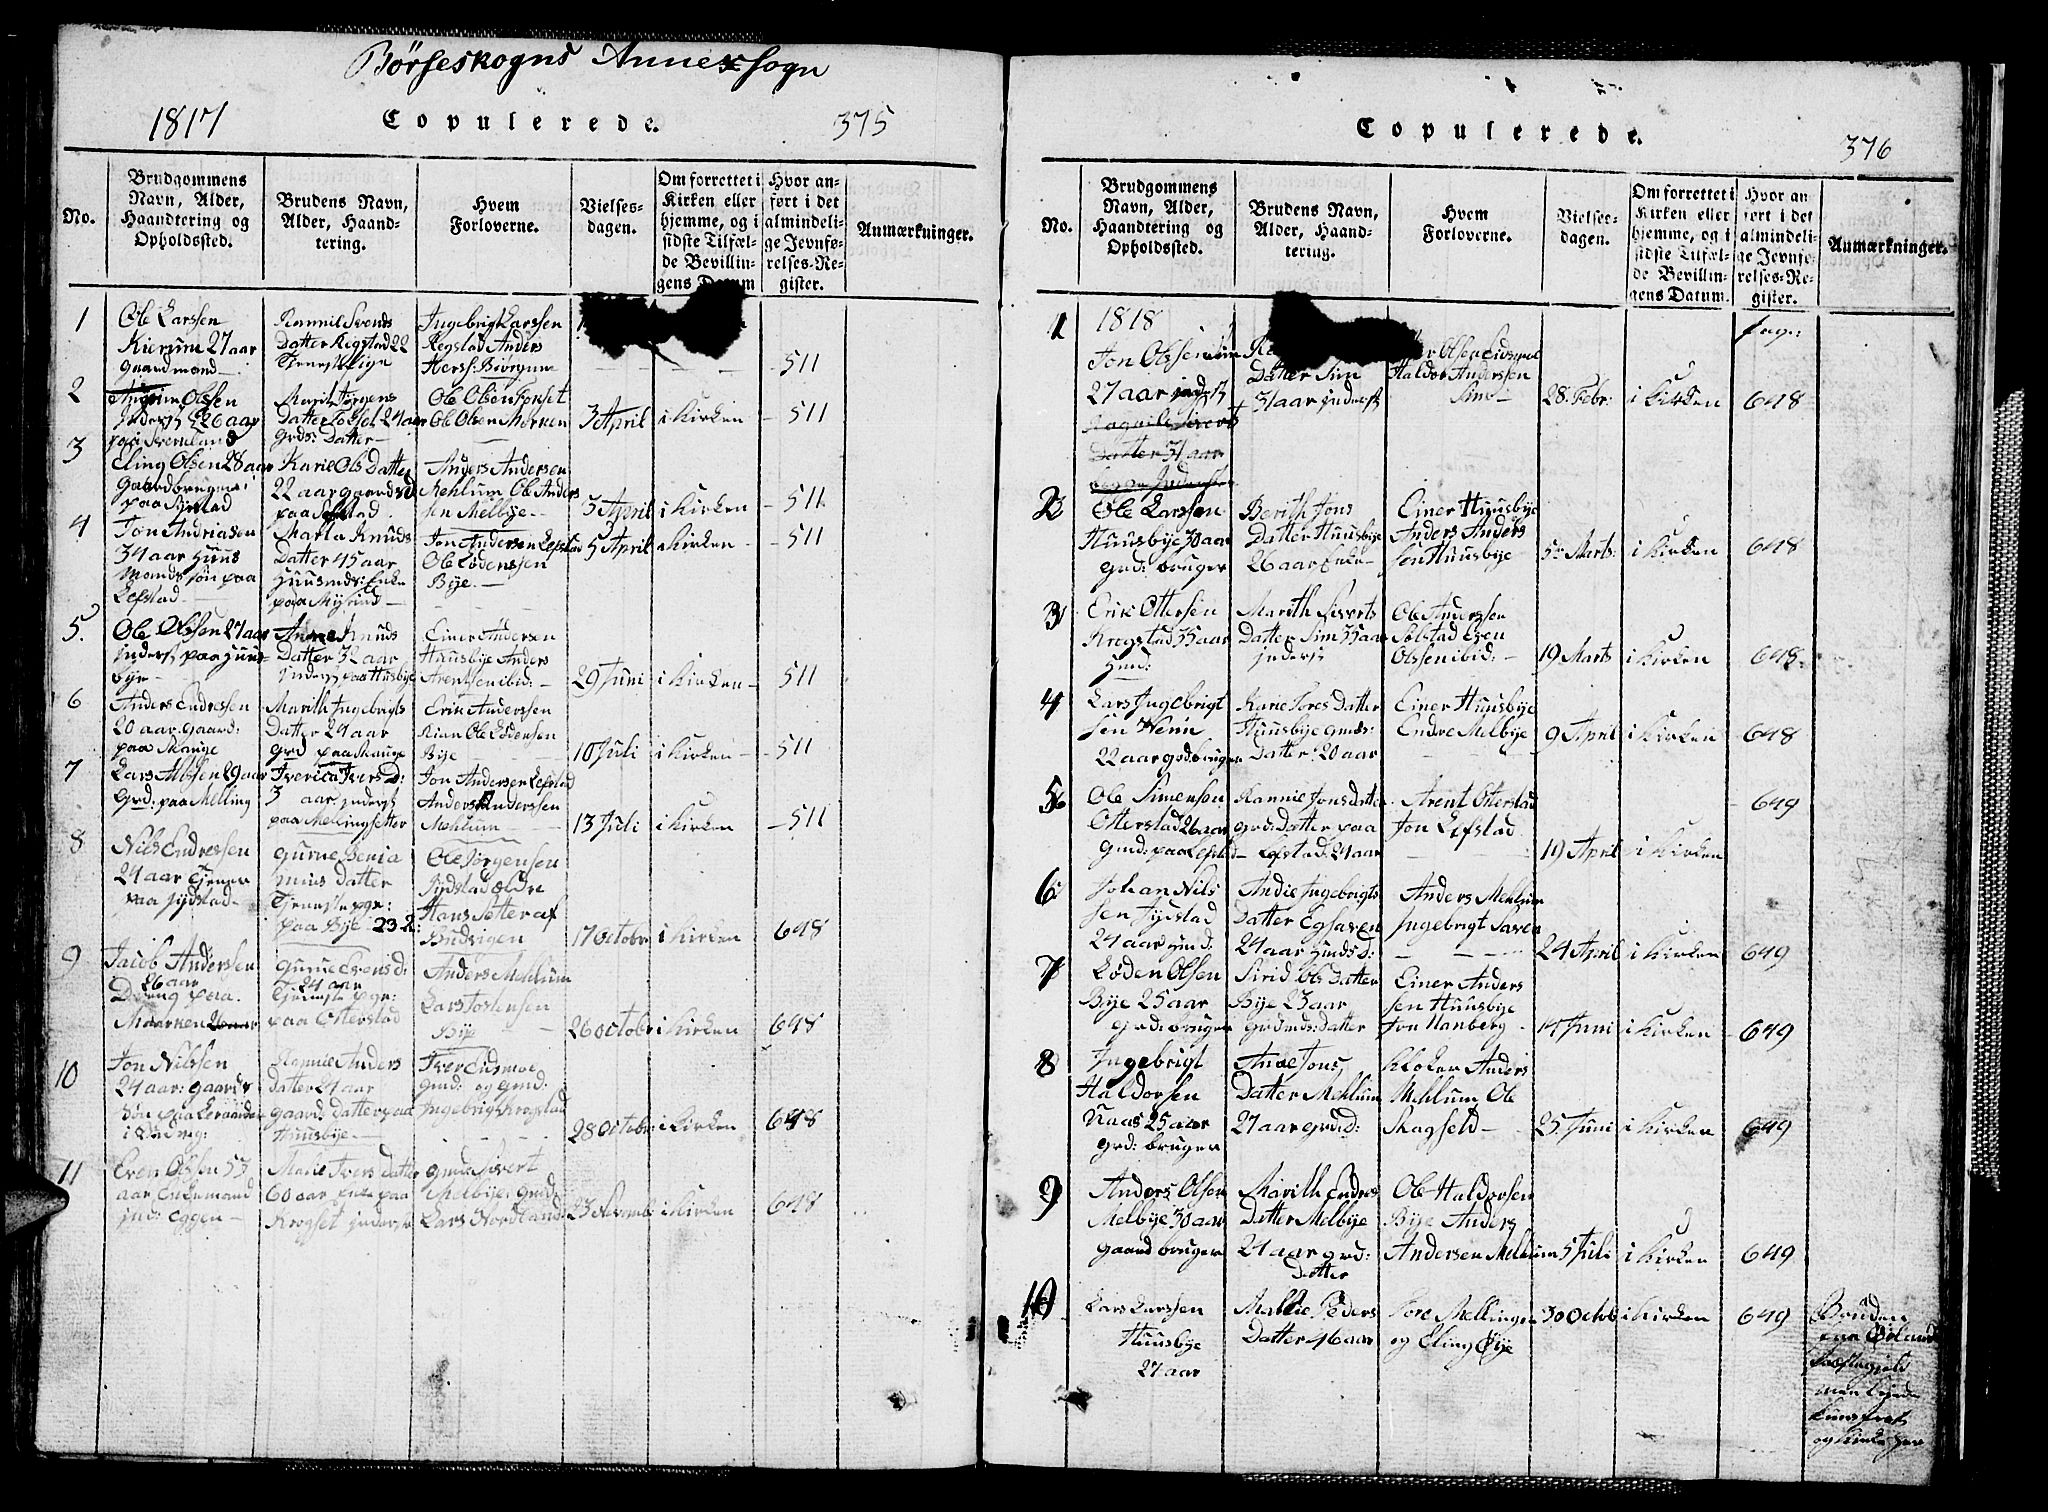 Børseskogns Annexsogn
1817 Copulerede. 375
No.
Brudgommens Navn, Alder, Haandtering og Opholdssted.
Brudens Navn, Alder, Haandtering.
Hvem Forloverne.
Vielsesdagen.
Om forrettet i Kirken eller hjemme, og i sidste Tilfælde Bevillingens Datum
Hvor anført i det almindelige Jevnførelses-Register.
Anmærkninger.
1
Ole Larssen
27 aar
Gaardmand
Rannie Svends
Datter Rigstad 22
Ingebrigt Larssen
Regstad Anders
511
2
Olsen
26 aar
Marit Jørgens
Datter 24 aar
Grds: Datter
Ole Olsen
Ole Olsen
3 April i Kirken 511
3
Eling Olsen 28 aar
Gaardbruger
paa
Karie Ols Datter
22 aar
paa
Anders Andersen
Mehlum Ole Anders
sen Melbye
3 April i Kirken 511
4
Jon Andriasen
34 aar Huus
Mands søn paa
Lefstad
Marta Knuds
Datter 45 aar
Huusmds: Enke
paa
Jon Andersen Lefstad
Ole Lodenssen
Bye
5 April i Kirken 511
5.
Ole Olssen 27 aar
Inderst paa Huus
bye
Anne Knuds
Datter 32 aar
Inderst paa Husbye
Einer Andersen
Huusbye Anders
Arentsen ibid:
29 Juni i Kirken 511
6
Anders Endressen
20 aar Gaard:
paa Mauge
Marith Ingebrigts
Datter 24 aar
Grd paa Mauge
Erik Anderssen
Ole Lodensen
Bye
10 Juli i Kirken 511
7
Lars 29 aar
Grd: paa Melling
Ivers D:
3 aar Inderst
paa Mellingsetter
Jon Andersen Lefstad
Anders Anderssen
Mehlum
13 Juli i Kirken 511
8
Nils Endressen
24 aar Tjener
paa Jydstad
Gurue Benja
mins Datter
Tjeneste pge:
paa Bye 23 a:
Ole Jørgensen
Jydstad ældre
Hans Setter af
Budvigen
17 Octobr i Kirken 648
9
Jacob Andersen
26 aar
Dreng paa
Gurue Evens d:
24 aar
Tjeneste pge:
paa Otterstad
Anders Mehlum
Lars Tostensen
Bye
26 Octobr i Kirken 648
10
Jon Nilssen
24 aar: Gaards
Søn paa
Rannie Anders
Datter 21 aar
Gaards Datter paa
Huusbye
Iver Eidsmoe
Gmd: og Gmd:
Ingebrigt Krogstad
28 Octobr: i Kirken 648
11
Even Olssen 53
aar Enkemand
ind: Eggen
Marie Ivers Datter
60 aar Enke paa
Krogset Inderst
Gmd: Sivert
Melbye: Gmd:
Lars Nordland
23 Novemb: i Kirken 648
Copulerede. 376
No.
Brudgommens Navn, Alder, Haandtering og Opholdssted.
Brudens Navn, Alder, Haandtering.
Hvem Forloverne.
Vielsesdagen.
Om forrettet i Kirken eller hjemme, og i sidste Tilfælde Bevillingens Datum.
Hvor anført i det almindelige Jevnførelses-Register.
Anmærkninger.
1
1818
pag:
Jon Olssen Sim
27 aar Inderst
Datter Sim
31 aar Inderst
Olsen Eidsmoe
Haldor Anderssen
Sim
28 Febr: i Kirken 648
Datter 31 aar
2
Ole Larssen
Huusbye 30 aar
Grd: bruger
Berith Jons
Datter Huusbye
26 aar Enke
Einer Huusbye
Anders Anders
sen Huusbye
5te Marts i Kirken 648
3
Erik Ottersen
Krogstad 35 aar
Gmd:
Marith Siverts
Datter Sim 35 aar
Inderst
Ole Anderssen
Solstad Even
Olssen ibid:
19 Marts i Kirken 648
4
Lars Ingebrigt
sen Wenn
22 aar Grd:bruger
Karie Tores Datter
Huusbye Gmds:
Datter: 20 aar
Einer Huusbye
Endre Melbye
9 April i Kirken 648
5
Ole Simensen
Otterstad 26 aar
Gmd: paa Lefstad
Rannie Jonsdatter
Grd: Datter paa
Lefstad: 24 aar
Arent Otterstad
Jon Lefstad
19 April i Kirken
649
6
Johan Nils
sen Jydstad
24 aar Gmd:
Andie Ingebrigts
Datter Eghaven
24 aar Hmds D:
Anders Mehlum
Ingebrigt
24 April i Kirken 649
7
Loden Olsen
Bye 25 aar
Grd: bruger
Sirid Ols Datter
Bye 23 aar
Grdmds: Datter
Einer Anders
sen Huusbye
Jon Hanberg
14 Juni i Kirken 649
8
Ingebrigt
Haldorsen
Naas 25 aar
Grd: bruger
Anne Jons
Datter Mehlum
27 aar
Kloker Anders
Mehlum Ole
Skagseld
25 Juni i Kirken 649
9
Anders Olsen
Melbye 30 aar
Gaard bruger
Marith Endres
Datter Melbye
21 aar Grd:
Datter
Ole Haldorsen
Bye Anders
Andersen Mehlum
5 Juli i Kirken 649
10
Lars Larssen
Huusbye
27 aar
Mallie Peders
Datter 46 aar
Tore Mellingen
og Eling Øye
30 Octob i Kirken 649
Bruden
paa Ørland
Præstegjeld
og Kirke her